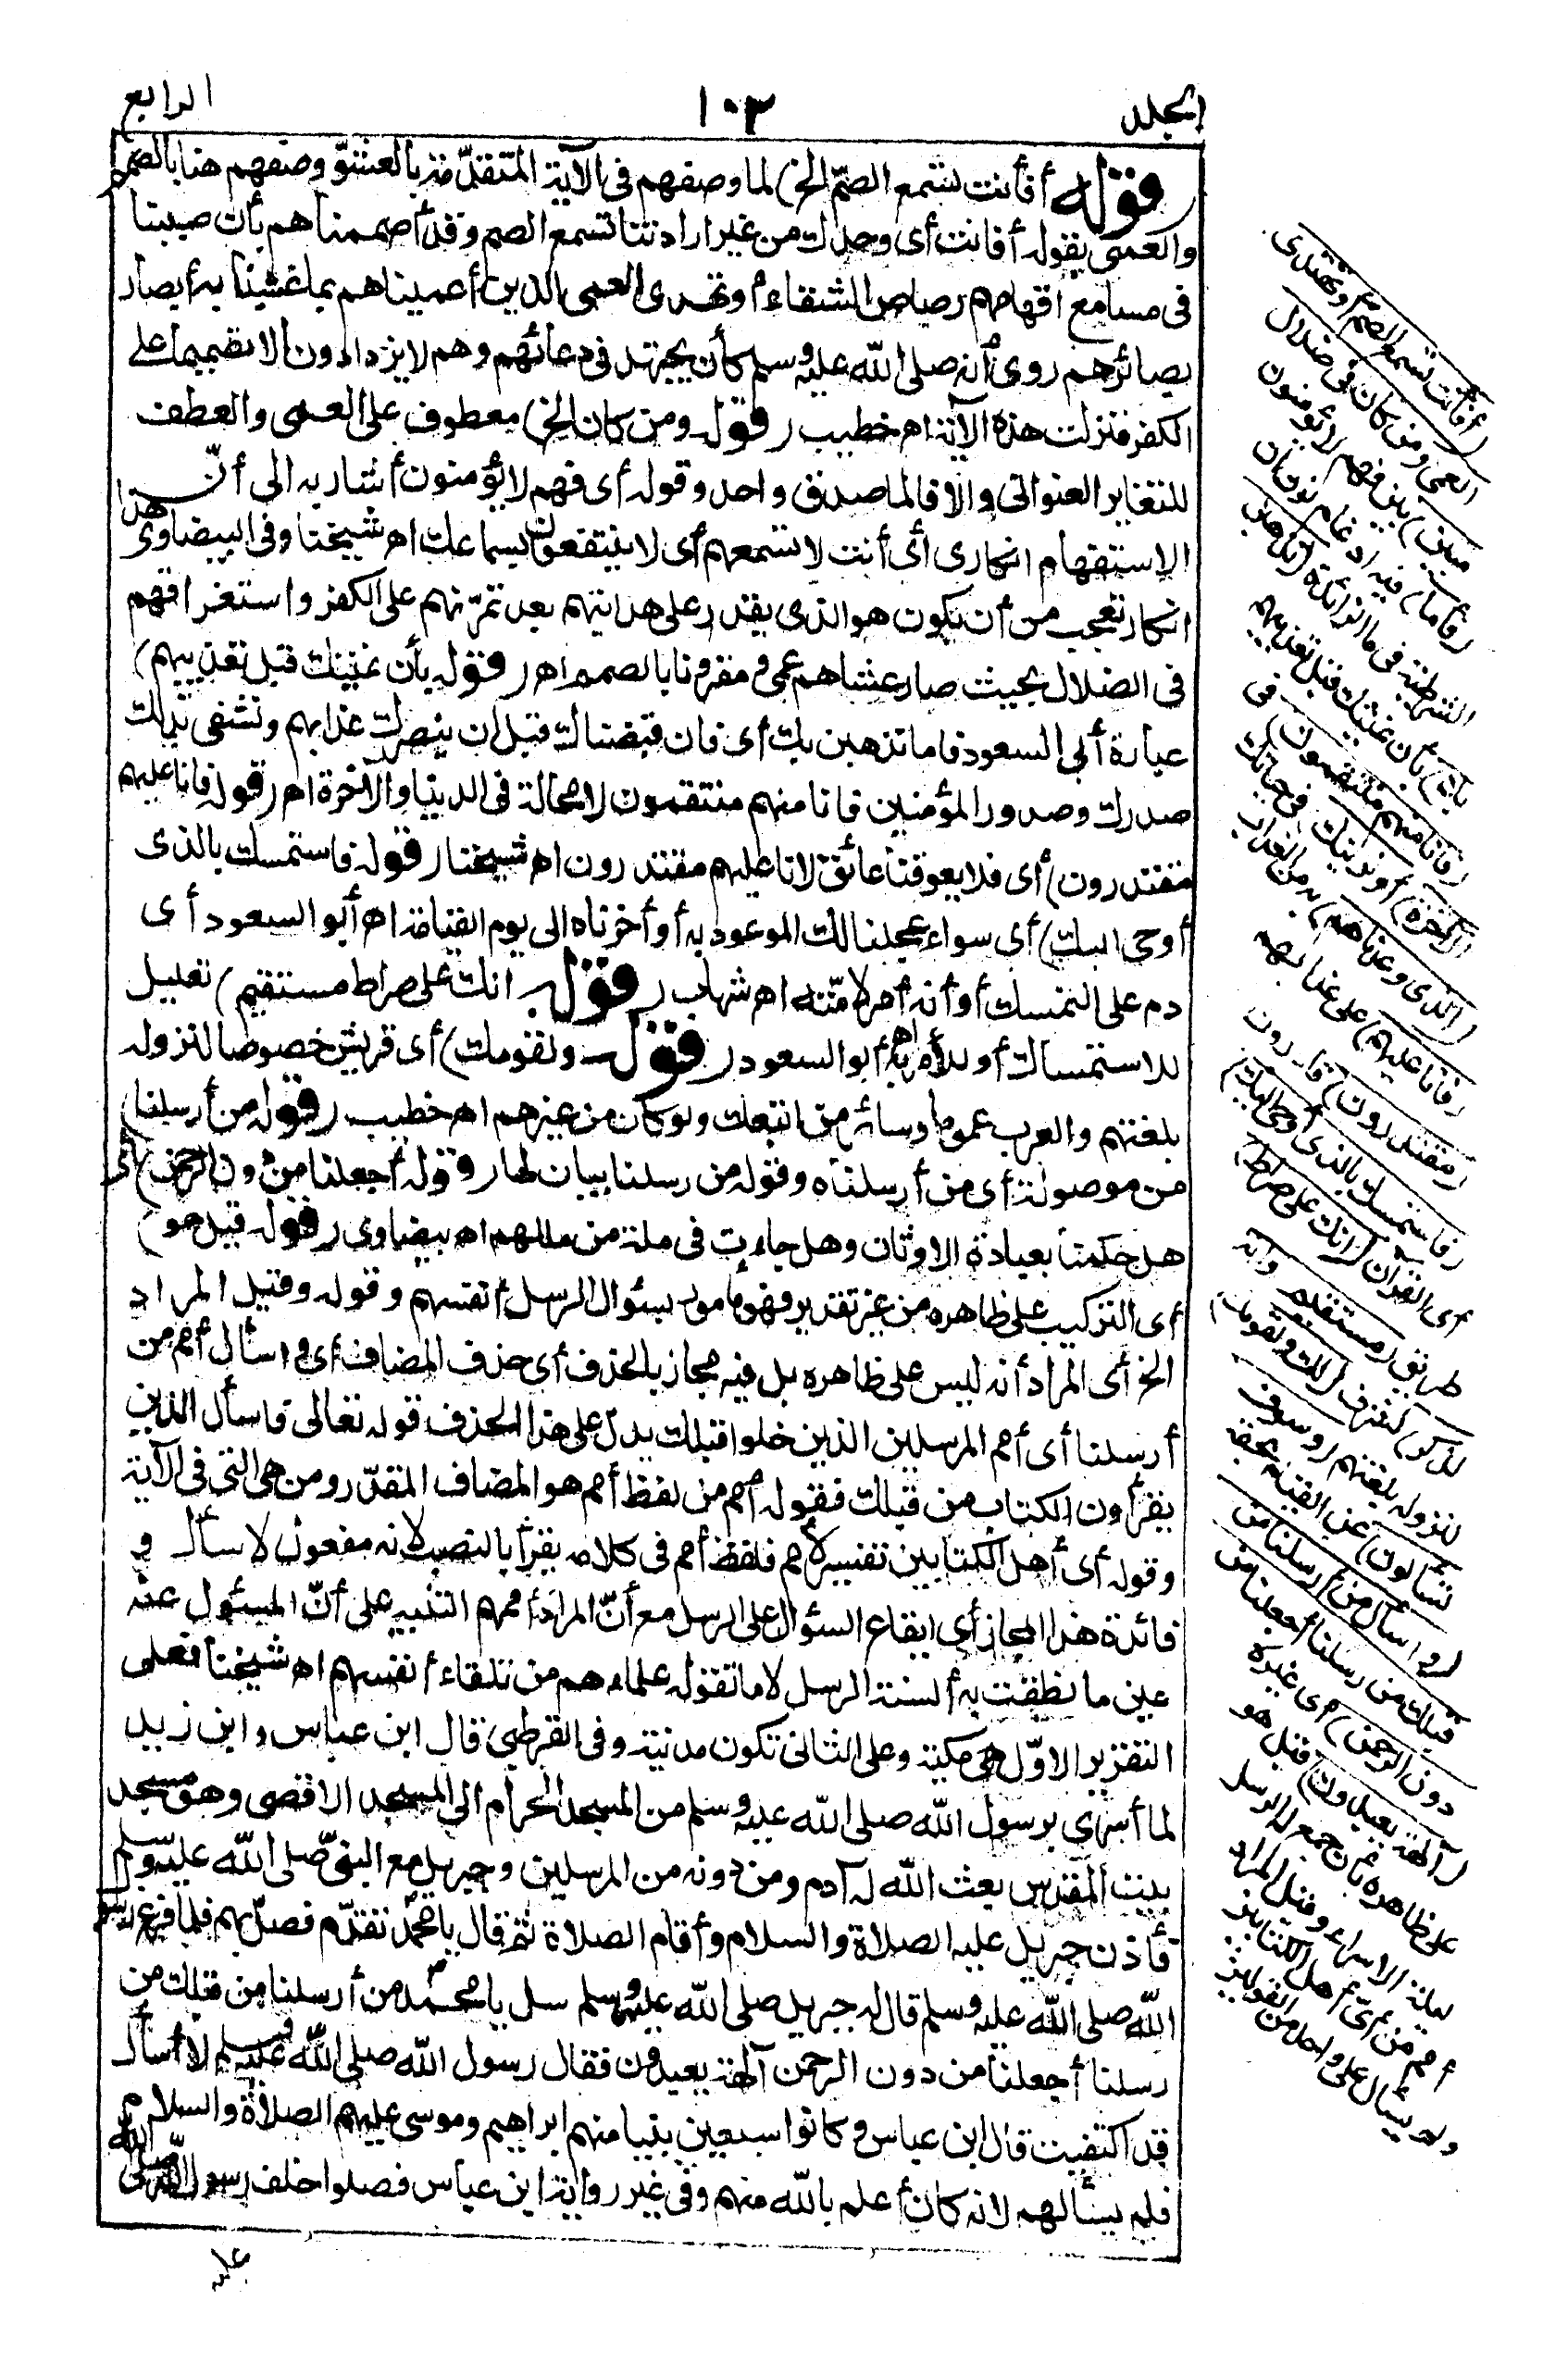 المجلد
١٠٣
الرابع
(قوله أفأنت تسمع الصمّ الخ) لما وصفهم فى الآية المتقدّمة بالعشوّ وصفهم هنا بالصمم
والعمى بقوله أفانت أى وحدك من غير ارادتنا تسمع الصم وقد أصممناهم بأن صببنا
فى مسامع افهامهم رصاص الشقاء أوتهدى العمى الذين أعميناهم بما غشينا به أبصار
بصائرهم روى أنه صلى الله عليه وسلم كان يجتهد فى دعائهم وهم لا يزدادون الا تصميما على
الكفر فنزلت هذه الآية اهـ خطيب (قوله ومن كان الخ) معطوف على العمى والعطف
للتغاير العنوانى والا فالماصدق واحد وقوله أى فهم لا يؤمنون أشار به الى أنّ هذا
الاستفهام انكارى أى أنت لا تسمعهم أى لا ينتفعون بسماعك اهـ شيخنا وفى البيضاوى
انكار تعجب من أن يكون هو الذى يقدر على هدايتهم بعد تمرّنهم على الكفر واستغراقهم
فى الضلال بحيث صار عشاهم عمى مقرونا بالصمم اهـ (قوله بأن نميتك قبل تعذيبهم)
عبارة أبى السعود فاما نذهبن بك أى فان قبضناك قبل ان ينصرك عذابهم ونشفى بذلك
صدرك وصدور المؤمنين فانا منهم منتقمون لا محالة فى الدنيا والآخرة اهـ (قوله فانا عليهم
مقتدرون) أى فلا يعوقنا عائق لانا عليهم مقتدرون اهـ شيخنا (قوله فاستمسك بالذى
أوحى اليك) أى سواء عجلنا لك الموعود به أو أخرناه الى يوم القيامة اهـ أبو السعود أى
دم على التمسك أو أنه أمر لامّته اهـ شهاب (قوله انك على صراط مستقيم) تعليل
للاستمساك أو للأمر به اهـ أبو السعود (قوله ولقومك) أى قريش خصوصا لنزوله
بلغتهم والعرب عموما وسائر من اتبعك ولو كان من غيرهم اهـ خطيب (قوله من أرسلنا)
من موصولة أى من أرسلناه وقوله من رسلنا بيان لها (وقوله أجعلنا من دون الرحمن) أى
هل حكمنا بعبادة الاوثان وهل جاءت فى ملة من مللهم اهـ بيضاوى (قوله قيل هو)
أى التركيب على ظاهره من غير تقدير فهو مأمور بسؤال الرسل أنفسهم وقوله وقيل المراد
الخ أى المراد أنه ليس على ظاهره بل فيه مجاز بالحذف أى حذف المضاف أى واسأل أمم من
أرسلنا أى أمم المرسلين الذين خلوا قبلك يدلّ على هذا الحذف قوله تعالى فاسأل الذين
يقرأون الكتاب من قبلك فقوله أمم من لفظ أمم هو المضاف المقدّر ومن هى التى فى الآية
وقوله أى أهل الكتابين تفسير لأمم فلفظ أمم فى كلامه يقرأ بالنصب لانه مفعول لاسأل و
فائدة هذا المجاز أى ايقاع السؤال على الرسل مع أنّ المراد أممهم التنبيه على أنّ المسئول عنه
عين ما نطقت به ألسنة الرسل لا ما تقوله علماءهم من تلقاء أنفسهم اهـ شيخنا فعلى
التقرير الاوّل هى مكية وعلى الثانى تكون مدنية وفى القرطبى قال ابن عباس وابن زيد
لما أسرى برسول الله صلى الله عليه وسلم من المسجد الحرام الى المسجد الاقصى وهو مسجد
بيت المقدس بعث الله له آدم ومن دونه من المرسلين وجبريل مع النبىّ صلى الله عليه وسلم
فأذن جبريل عليه الصلاة والسلام وأقام الصلاة ثم قال يا محمد تقدّم فصلّ بهم فلما فرغ رسول
الله صلى الله عليه وسلم قال له جبريل صلى الله عليه وسلم سل يا محمد من أرسلنا من قبلك من
رسلنا أجعلنا من دون الرحمن آلهة يعبدون فقال رسول الله صلى الله عليه وسلم لا أسأل
قد اكتفيت قال ابن عباس وكانوا سبعين نبيا منهم ابراهيم وموسى عليهم الصلاة والسلام
فلم يسألهم لانه كان أعلم بالله منهم وفى غير رواية ابن عباس فصلوا خلف رسول الله صلى الله
عليه
(أفأنت تسمع الصمّ أوتهدى
العمى ومن كان فى ضلال
مبين) بين فهم لا يؤمنون
(فأما) فيه ادغام نون ان
الشرطية فى ما الزائدة (نذهبن
بك) بأن نميتك قبل تعذيبهم
(فانا منهم منتقمون) فى
الآخرة (أو نرينك) فى حياتك
(الذى وعدناهم) به من العذاب
(فانا عليهم) على عذابهم
(مقتدرون) قادرون
(فاستمسك بالذى أوحى اليك)
أى القرآن (انك على صراط)
طريق (مستقيم وانه
لذكر) لشرف (لك ولقومك)
لنزوله بلغتهم (وسوف
تسألون) عن القيام بحقه
(واسأل من أرسلنا من
قبلك من رسلنا أجعلنا من
دون الرحمن) أى غيره
(آلهة يعبدون) قيل هو
على ظاهره بأن جمع له الرسل
ليلة الاسراء وقيل المراد
أمم من أىّ أهل الكتابين
ولم يسأل على واحد من القولين